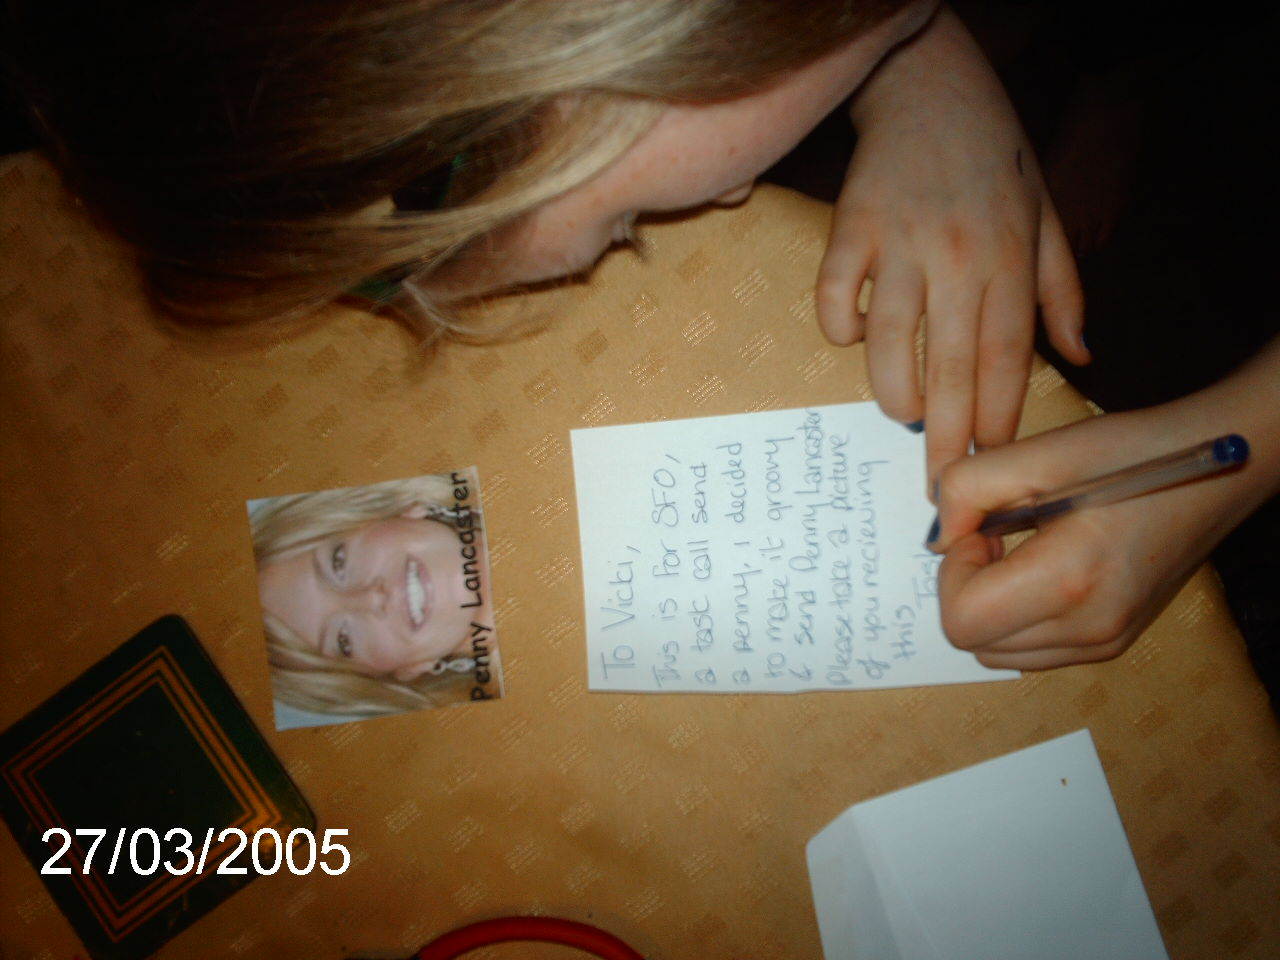 To Vicki,
This is for SFO,
a task call send
a penny, I decided
to make it groovy
& send Penny Lancaster
Please take a picture
of you recieving
this
Task
Penny Lancaster
27/03/2005